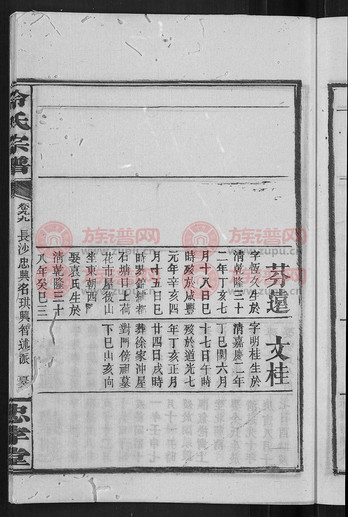 冷氏宗譜
卷九 長沙忠興名琪興智述派
忠孝堂
芬遠
字恆久生於
清乾隆三十
二年丁亥七
月十八日巳
時歿於咸豐
元年辛亥四
月十五日巳
石塘口上荷
花市屋後山
坐東朝西
娶袁氏生於
清乾隆三十
八年癸巳三
文桂
字明桂生於
清嘉慶二年
丁巳閏六月
十七日午時
歿於道光七
年丁亥正月
廿四日戌時
葬徐家沖屋
對門傍祖墓
下巳山亥向
族谱网
www.zupu.cn